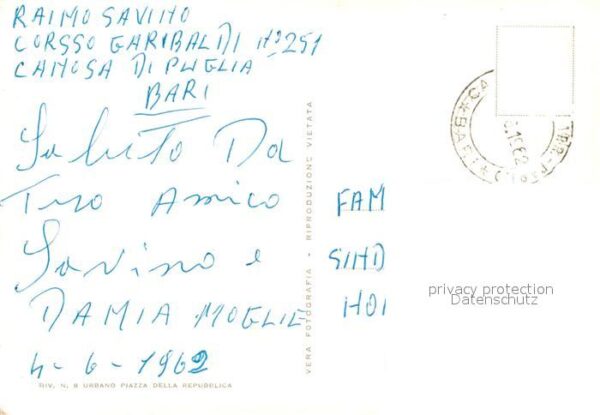 RAIMO SAVINO
CORSSO GARIBALDI No 251
CANOSA DI PUGLIA
BARI
Saluto Da
Tuo Amico
Savino e
DAMIA MOGLIE
4-6-1962
FAM
SIND
NOI
VERA FOTOGRAFIA - RIPRODUZIONE VIETATA
RIV. N. 8 URBANO PIAZZA DELLA REPUBBLICA
privacy protection
Datenschutz